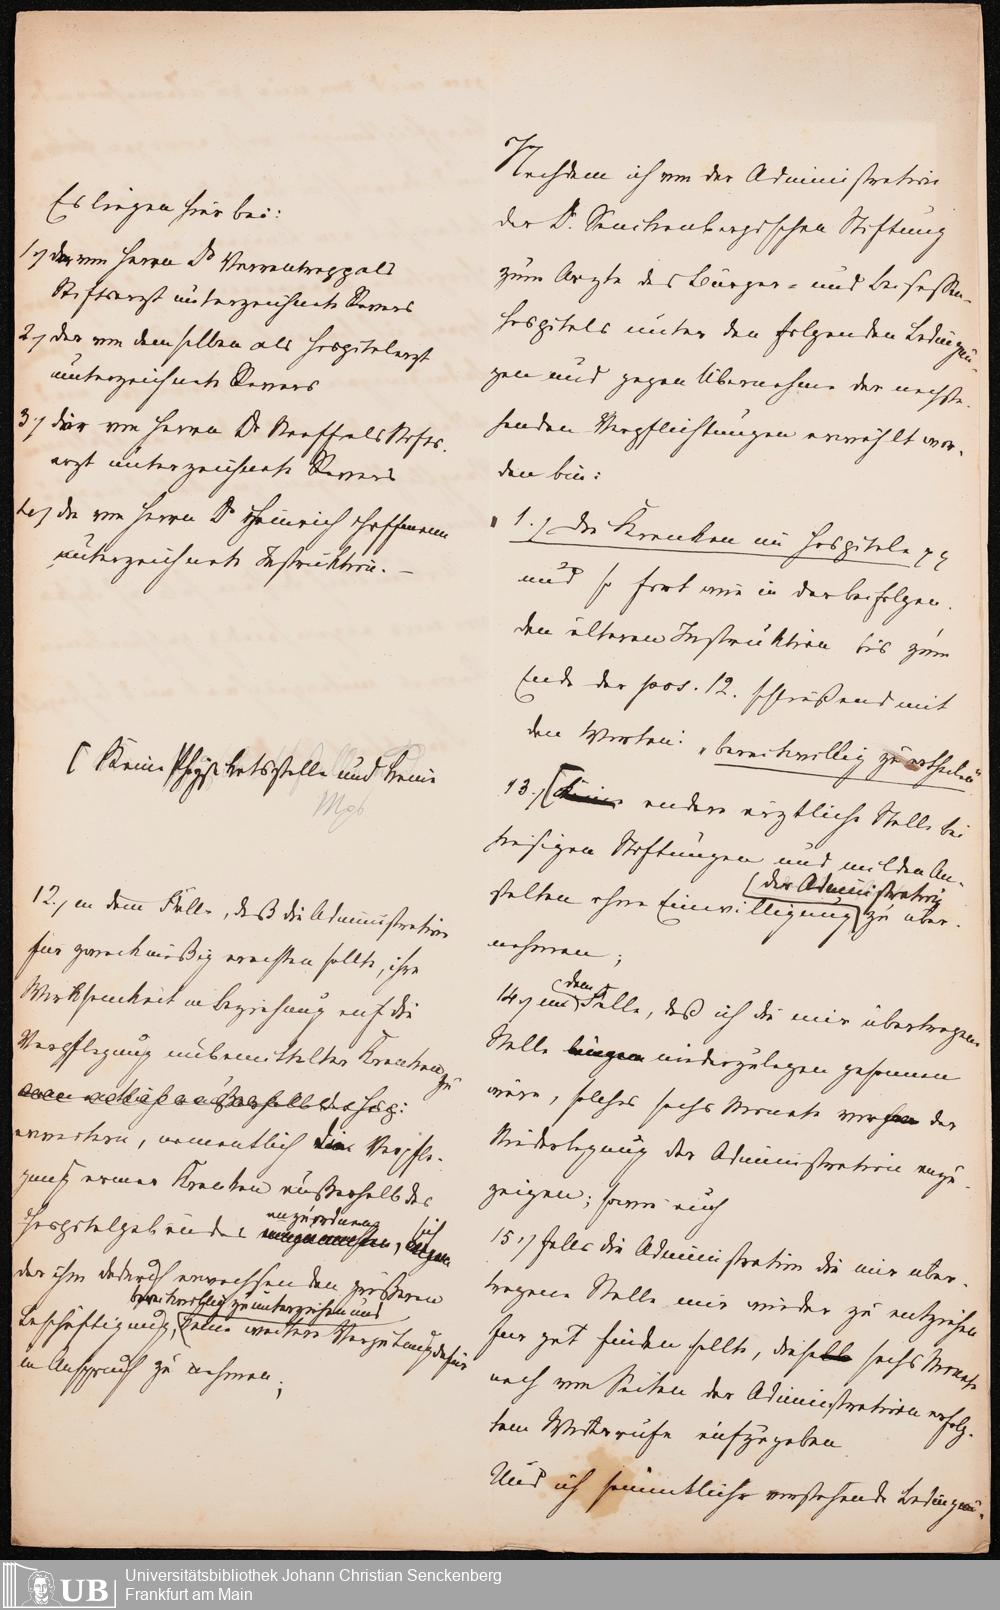 Es liegen hier bei:
1., der von Herrn Dr Varrentrapp als
Stiftsarzt unterzeichnete Revers
2., der von demselben als Hospitalarzt
unterzeichnete Revers
3., der von Herrn Dr als Stifts-
arzt unterzeichnete Revers
4., die von Herrn Dr Heinrich Hoffmann
unterzeichnete Instruktion. —
[ Keine Physikatsstelle und keine
12., in dem Falle, daß die Administration
für zweckmäßig erachten sollte, ihre
Wirksamkeit in Beziehung auf die
Verpflegung unbemittelter Kranken zu
außerhalb des Hosp:
erweitern, namentlich die Verpfle-
gung armer Kranken außerhalb des
Hospitalgebäudes anzuordnen, sich
der ihm dadurch erwachsenden größeren
bereitwillig zu unterziehen und
Beschäftigung, keine weitere Vergütung dafür
in Anspruch zu nehmen;
Nachdem ich von der Administration
der Dr. Senckenbergischen Stiftung
zum Arzte des Bürger- und Beisassen-
hospitals unter den folgenden Bedingun-
gen und gegen Übernahme der nachste-
henden Verpflichtungen erwählt wor-
den bin:
1., Die Kranken im Hospitale pp
und so fort wie in der beifolgen-
den älteren Instruktion bis zum
Ende der pos. 12. schließend mit
den Worten: „bereitwillig zu ertheilen"
13., [Keine andere ärztliche Stelle bei
hiesigen Stiftungen und milden An-
stalten ohne Einwilligung der Administration zu über-
nehmen;
14., im dem Falle, daß ich die mir übertragene
Stelle niederzulegen gesonnen
wäre, solches sechs Monate vor der
Niederlegung der Administration anzu-
zeigen; sowie auch
15., falls die Administration die mir über-
tragene Stelle mir wieder zu entziehen
für gut finden sollte, dieselbe sechs Monate
nach von Seiten der Administration erfolg-
tem Widerrufe aufzugeben
Und ich sämmtliche vorstehende Bedingun-
UB
Universitätsbibliothek Johann Christian Senckenberg
Frankfurt am Main